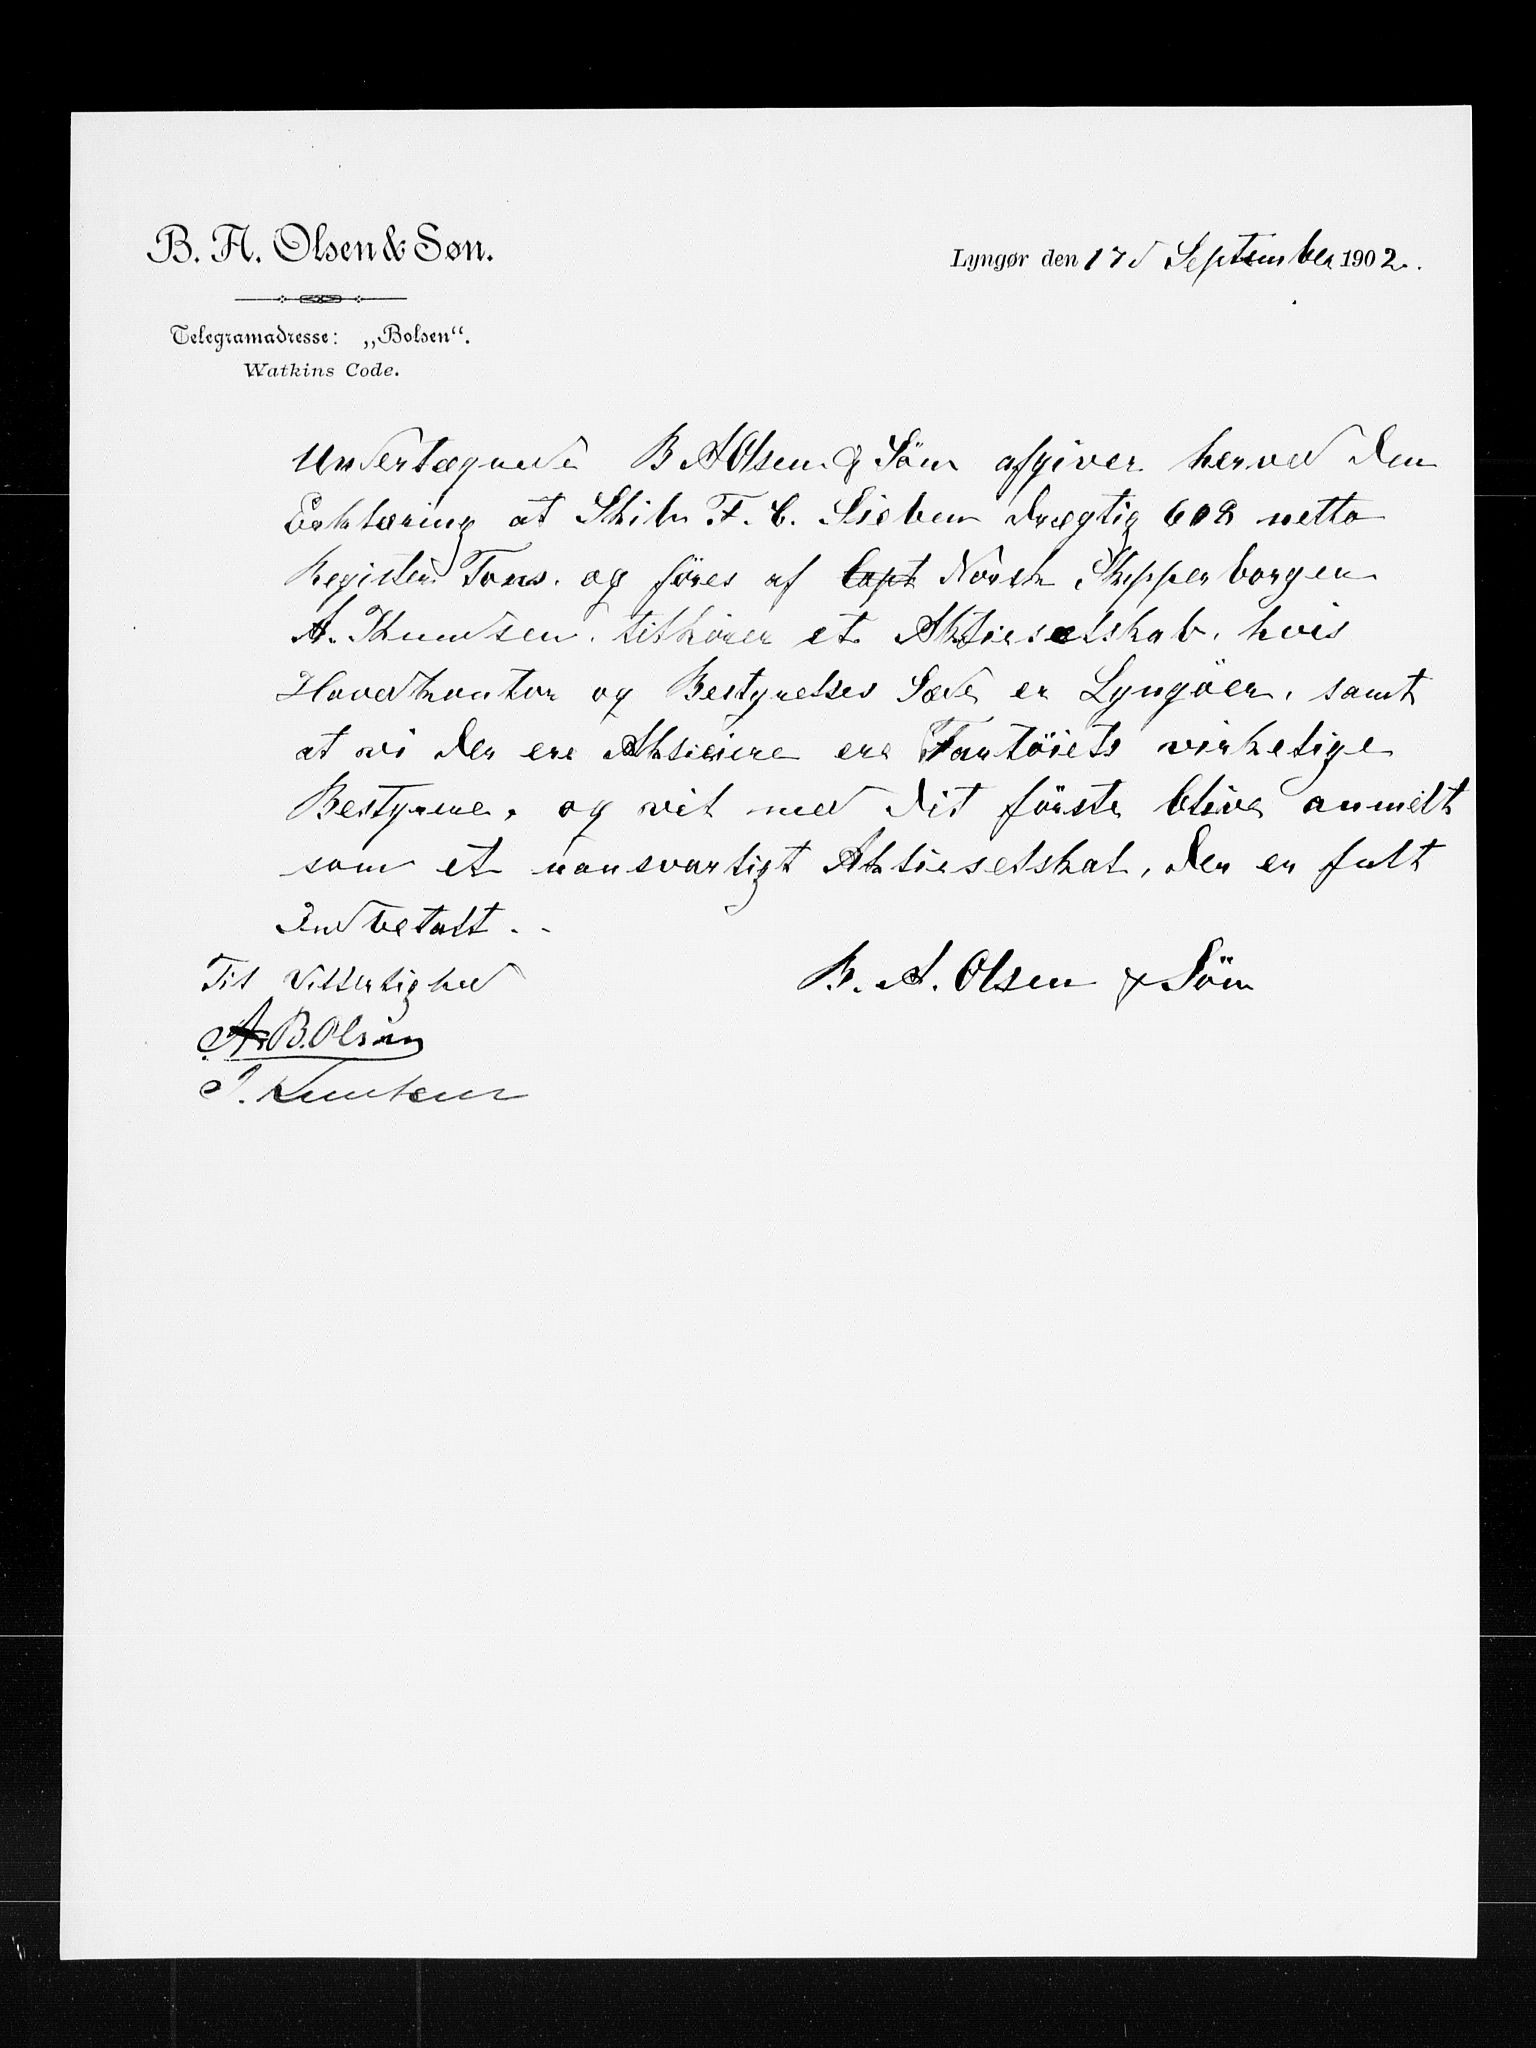 B. A. Olsen & Søn.
Telegramadresse: „Bolsen“.
Watkins Code.
Lyngør den 17d September 1902.
Undertegnede B A Olsen & Sön afgiver herved den
Erklæring at Skib F. C. Sieben drægtig 608 netto
Register Tons. og föres af Capt Norsk Skipperborger
A. Knudsen. tilhörer et Aktieselskab, hvis
Hovedkontor og Bestyrelses Sæde er Lyngöer, samt
at vi der ere Aktieiere ere Fartöiets virkelige
Bestyrere, og vil med det förste blive anmeldt
som et uansvarligt Aktieselskab, der er fult
Indbetalt . -
B. A. Olsen & Sön
Til Vitterlighed
A. B. Olsen
J. Knutsen